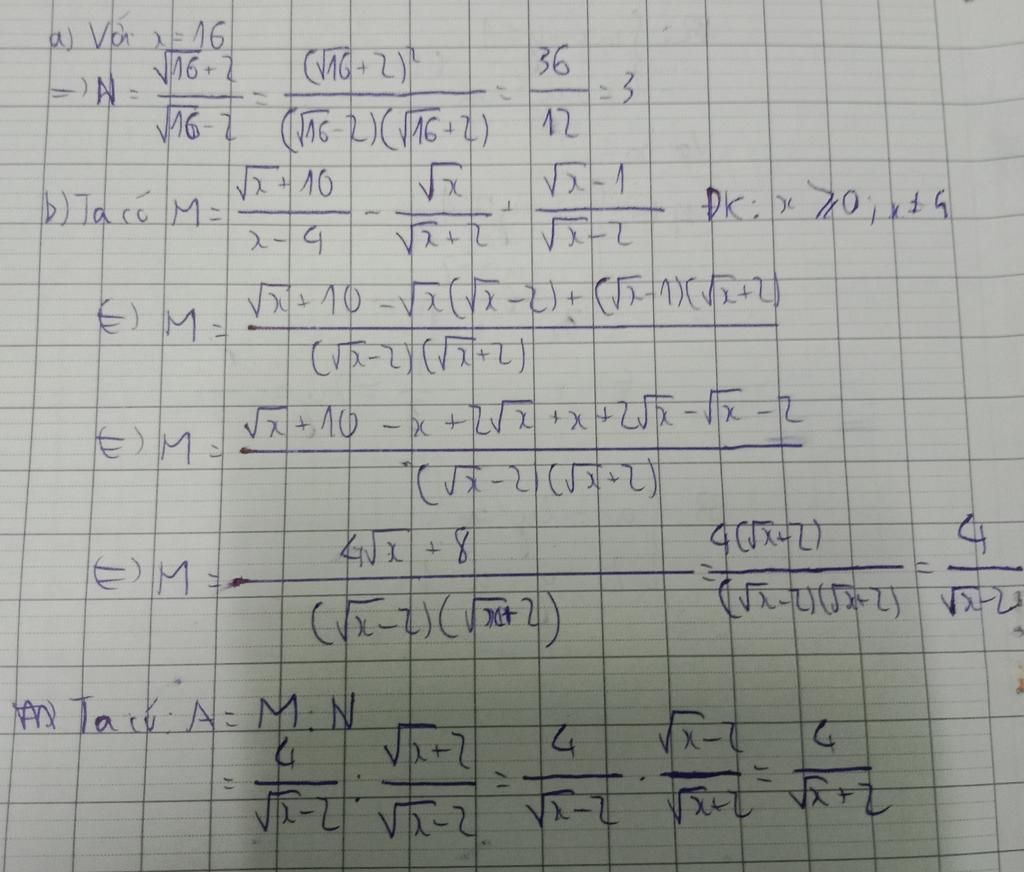 a) Với x = 16
=) N = (√16 + 2)/(√16 - 2) = (√16 + 2)²/((√16 - 2)(√16 + 2)) = 36/12 = 3
b) Ta có M = (√x + 10)/(x - 4) - √x/(√x + 2) + (√x - 1)/(√x - 2) ĐK: x ⩾ 0; x ≠ 4
(=) M = (√x + 10 - √x(√x - 2) + (√x - 1)(√x + 2))/((√x - 2)(√x + 2))
(=) M = (√x + 10 - x + 2√x + x + 2√x - √x - 2)/((√x - 2)(√x + 2))
(=) M = (4√x + 8)/((√x - 2)(√x + 2)) = 4(√x + 2)/((√x - 2)(√x + 2)) = 4/(√x - 2)
Ta có: A = M : N
= 4/(√x - 2) : (√x + 2)/(√x - 2) = 4/(√x - 2) . (√x - 2)/(√x + 2) = 4/(√x + 2)